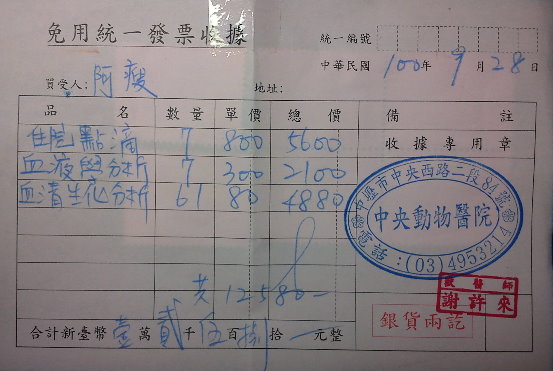 免用統一發票收據
統一編號
中華民國 100年 9月28日
買受人: 阿瘦 地址:
品名 數量 單價 總價 備註
住院點滴 7 800 5600 收據專用章
血液學分析 7 300 2100
血清生化分析 61 80 4880
中壢市中央西路二段84號
中央動物醫院
電話:(03)4953214
共12580-
獸醫師
謝許來
銀貨兩訖
合計新臺幣壹萬貳千伍百捌拾 元整